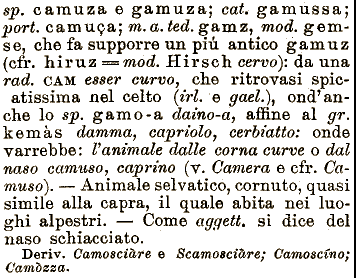 sp. camuza e gamuza; cat. gamussa;
port. camuça; m. a. ted. gamz, mod. gem-
se, che fa supporre un piú antico gamuz
(cfr. hiruz = mod. Hirsch cervo): da una
rad. CAM esser curvo, che ritrovasi spic-
atissima nel celto (irl. e gael.), ond'an-
che lo sp. gamo-a daino-a, affine al gr.
kemàs damma, capriolo, cerbiatto: onde
varrebbe: l'animale dalle corna curve o dal
naso camuso, caprino (v. Camera e cfr. Ca-
muso). — Animale selvatico, cornuto, quasi
simile alla capra, il quale abita nei luo-
ghi alpestri. — Come aggett. si dice del
naso schiacciato.
Deriv. Camosciàre e Scamosciàre; Camoscíno;
Camòzza.